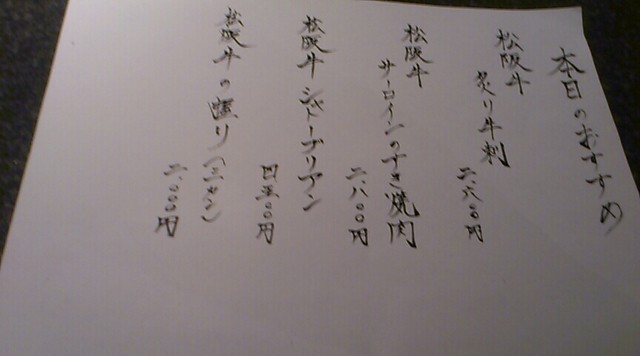 本日のおすすめ
松阪牛
炙り牛刺
二、八〇〇円
松阪牛
サーロインのすき焼肉
二、八〇〇円
松阪牛 シャトーブリアン
四、五〇〇円
松阪牛の握り(三かん)
二、〇〇〇円